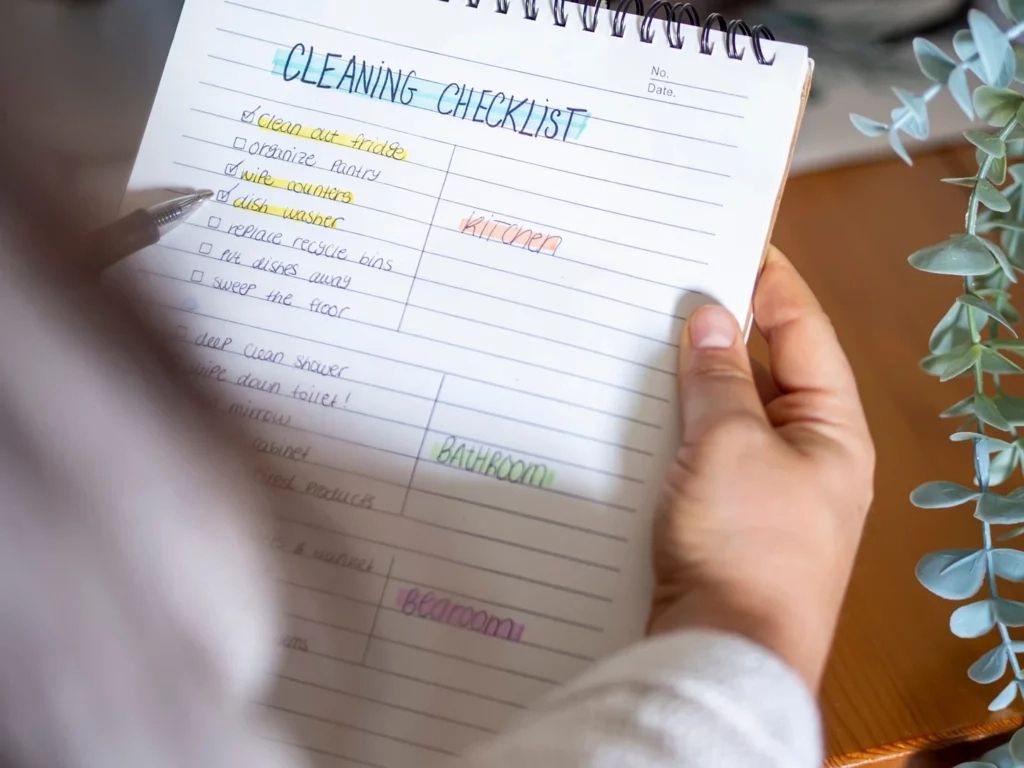 No.
Date.
CLEANING CHECKLIST
clean out fridge
organize pantry
wipe counters
dish washer
replace recycle bins
put dishes away
sweep the floor
Kitchen
deep clean shower
wipe down toilet!
mirrow
cabinet
products
BATHROOM
Bedroom